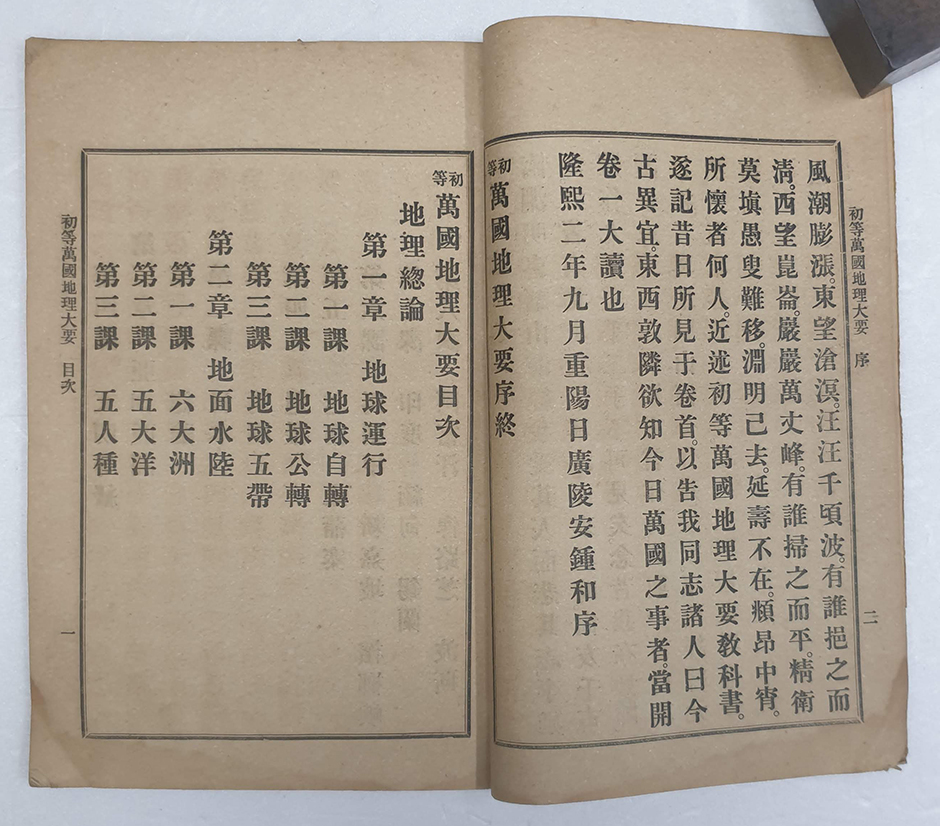 初等萬國地理大要 序 二
風潮膨漲。東望滄溟。汪汪千頃波。有誰挹之而
淸。西望崑崙。巖巖萬丈峰。有誰掃之而平。精衛
莫塡愚叟難移。淵明己去。延壽不在。頫昂中宵。
所懷者何人。近述初等萬國地理大要敎科書。
逐記昔日所見于卷首。以告我同志諸人曰今
古異宜。東西敦隣欲知今日萬國之事者。當開
卷一大讀也
隆熙二年九月重陽日廣陵安鍾和序
初等萬國地理大要序終
初等萬國地理大要目次
地理總論
第一章 地球運行
第一課 地球自轉
第二課 地球公轉
第三課 地球五帶
第二章 地面水陸
第一課 六大洲
第二課 五大洋
第三課 五人種
初等萬國地理大要 目次 一